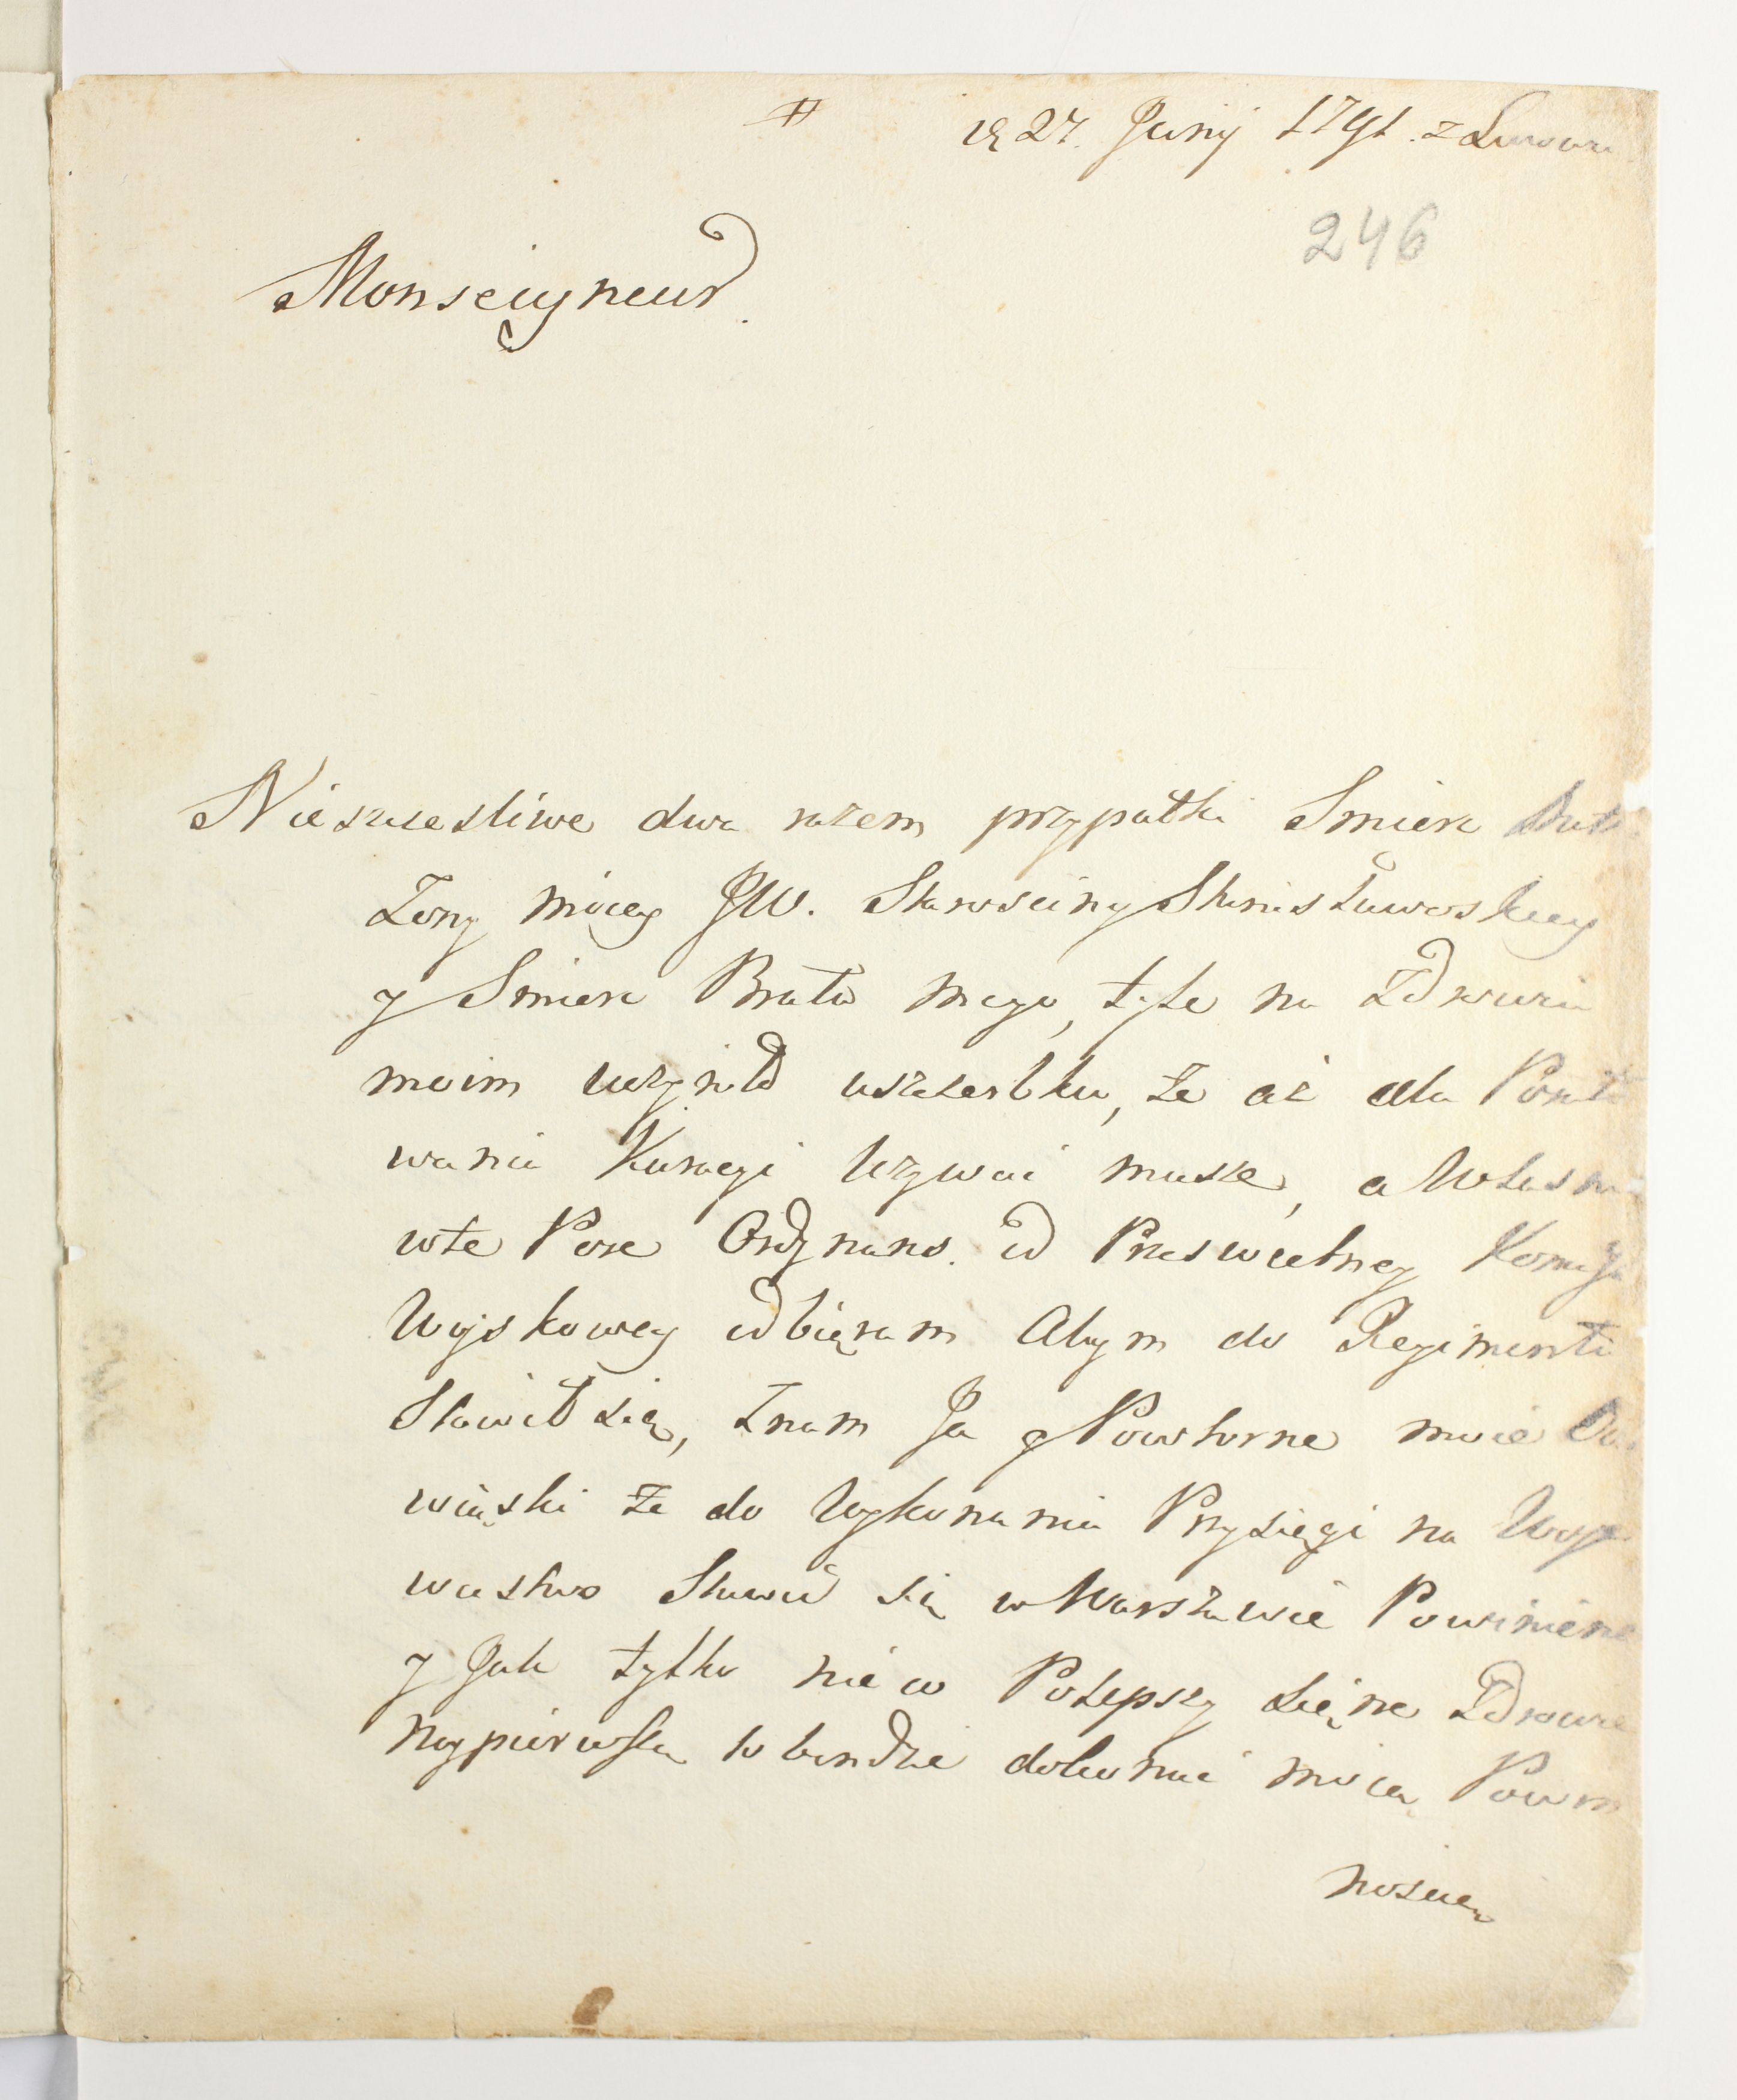 # d 27. Junij 1791. z Lwowa
246
Monseigneur.
Nieszczesliwe dwa razem przypatki Smierc Matki
Zony moiey JW. Starosciny Stanisławowskiey
y Smierc Brata mego, tyle na zdrowiu
moim uczynił uszczerbku, że aż dla Porato
wania Kuracyi Uzywać musze, a Własnie
wte Pore Ordynans od Przeswietney Komisyi
Woyskowey odbieram Abym do Regimentu
Stawił się, Znam Ja y Powtorne moie Obo
wiąski że do Wykonania Przysięgi na Woye
wustwo Stawić się w Warszawie Powinienem
y Jak tylko nieco Polepszy się na Zdrowie
Naypierwsza to bendzie dokonać moią Powin
nosień